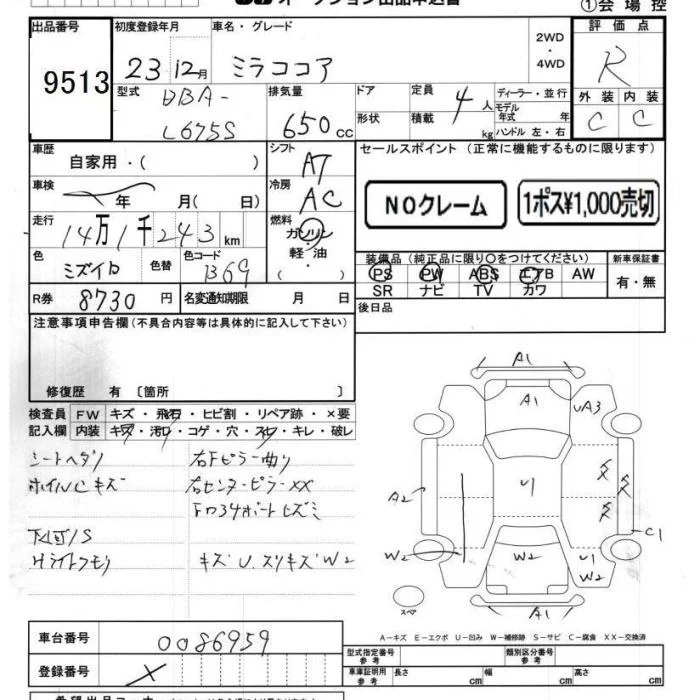 オークション出品申込書
①会場控
出品番号
初度登録年月
車名・グレード
2WD
・
4WD
評価点
9513
23 12月
ミラココア
R
型式
DBA-
L675S
排気量
650 cc
ドア
形状
定員
4人
積載
kg
ディーラー・並行
モデル年式 年
ハンドル 左・右
外装 内装
C C
車歴
自家用・( )
シフト
AT
セールスポイント (正常に機能するものに限ります)
車検
年 月( 日)
冷房
AC
NOクレーム
1ポス¥1,000売切
走行
14万1千243km
燃料
ガソリン
軽油
・( )・
色
ミズイロ
色替
色コード
B69
装備品(純正品に限り○をつけてください)
新車保証書
PS PW ABS エアB AW
SR ナビ TV カワ
有・無
R券
8730円
名変通知期限 月 日
後日品
注意事項申告欄(不具合内容等は具体的に記入して下さい)
修復歴 有〔箇所 〕
検査員 FW キズ・飛石・ヒビ割・リペア跡・×要
記入欄 内装 キズ・汚レ・コゲ・穴・スレ・キレ・破レ
シートヘタリ
右Fピラー曲り
ホイルCキズ
右センターピラーXX
下回りS
Hライトクモリ
キズU.スリキズW2
A1
A1
UA3
A2
U1
C1
W2
W2
U1
W2
A1
スペア
A－キズ E－エクボ U－凹み W－補修跡 S－サビ C－腐食 XX－交換済
車台番号
0086959
型式指定番号
参考
類別区分番号
参考
登録番号
X
車庫証明用
参考
長さ cm
幅 cm
高さ cm